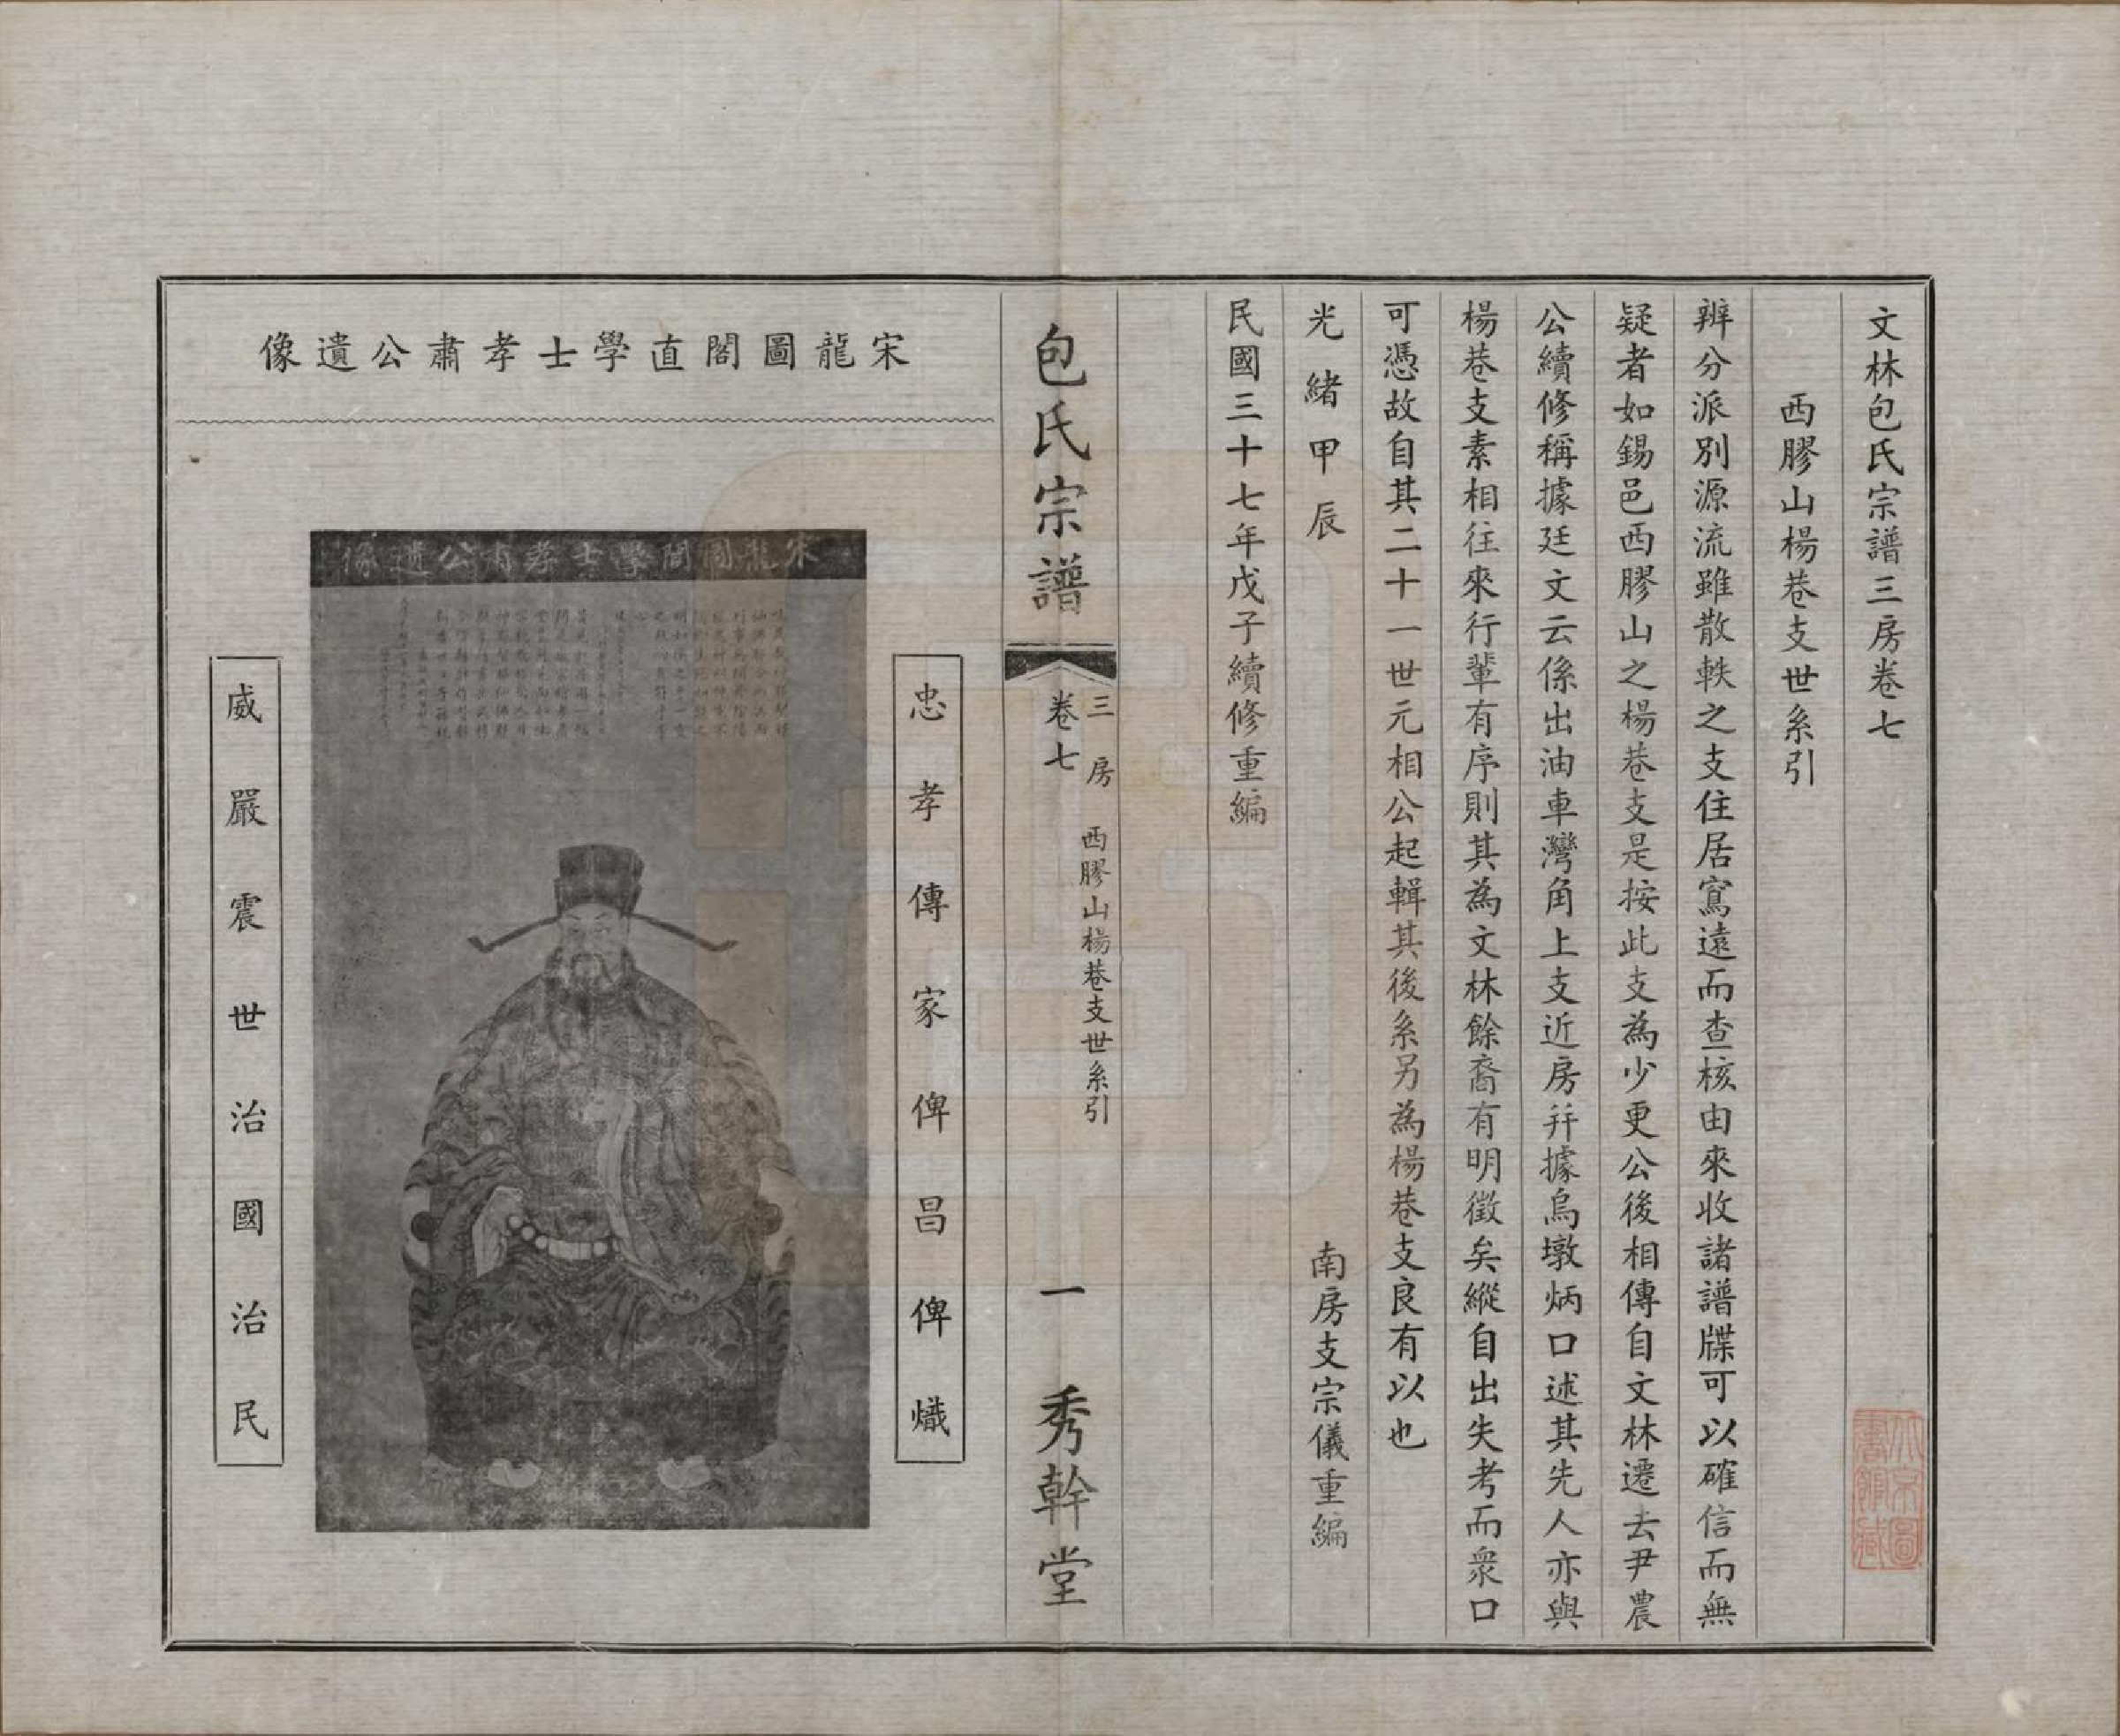 文林包氏宗譜三房卷七
西膠山楊巷支世系引
辨分派別源流雖散軼之支住居窵遠而查核由來收諸譜牒可以確信而無
疑者如錫邑西膠山之楊巷支是按此支為少更公後相傳自文林遷去尹農
公續修稱據廷文云係出油車灣角上支近房幷據烏墩炳口述其先人亦與
楊巷支素相往來行輩有序則其為文林餘裔有明徵矣縱自出失考而衆口
可憑故自其二十一世元相公起輯其後系另為楊巷支良有以也
光緒甲辰 南房支宗儀重編
民國三十七年戊子續修重編
包氏宗譜
三房 西膠山楊巷支世系引
卷七
一
秀幹堂
宋龍圖閣直學士孝肅公遺像
忠孝傳家俾昌俾熾
宋龍圖閣學士孝肅公遺像
威嚴震世治國治民
北京圖
書館藏